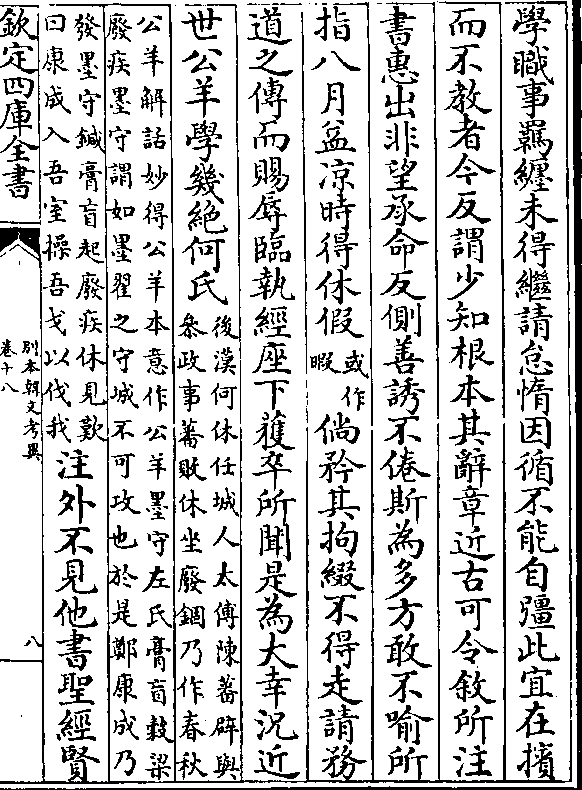 學職事羈纏未得繼請怠惰因循不能自彊此宜在擯
而不教者今反謂少知根本其辭章近古可令敘所注
書惠出非望承命反側善誘不倦斯為多方敢不喻所
指八月益涼時得休假或作暇倘矜其拘綴不得走請務
道之傳而賜辱臨執經座下獲卒所聞是為大幸況近
世公羊學幾絕何氏後漢何休任城人太傅陳蕃辟與
叅政事蕃敗休坐廢錮乃作春秋
公羊解詁妙得公羊本意作公羊墨守左氏膏肓穀梁
廢疾墨守謂如墨翟之守城不可攻也於是鄭康成乃
發墨守鍼膏肓起廢疾休見歎
曰康成入吾室操吾戈以伐我注外不見他書聖經賢
欽定四庫全書
別本韓文考異
卷十八
八